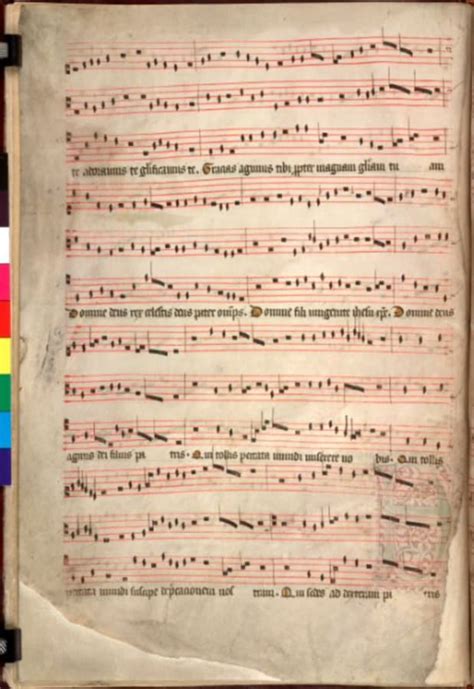 te adoramus te glificamus te. Gracias agimus tibi ꝓpter magnam gl̄iam tu am
Domine deus rex celestis deus pater om̄ps. Domine fili unigenite ihesu xp̄e. Domine deus
agnus dei filius pa tris. Qui tollis peccata mundi miserere no bis. Qui tollis
peccata mundi suscipe dep̄cacionem nos tram. Qui sedes ad dexteram pa tris